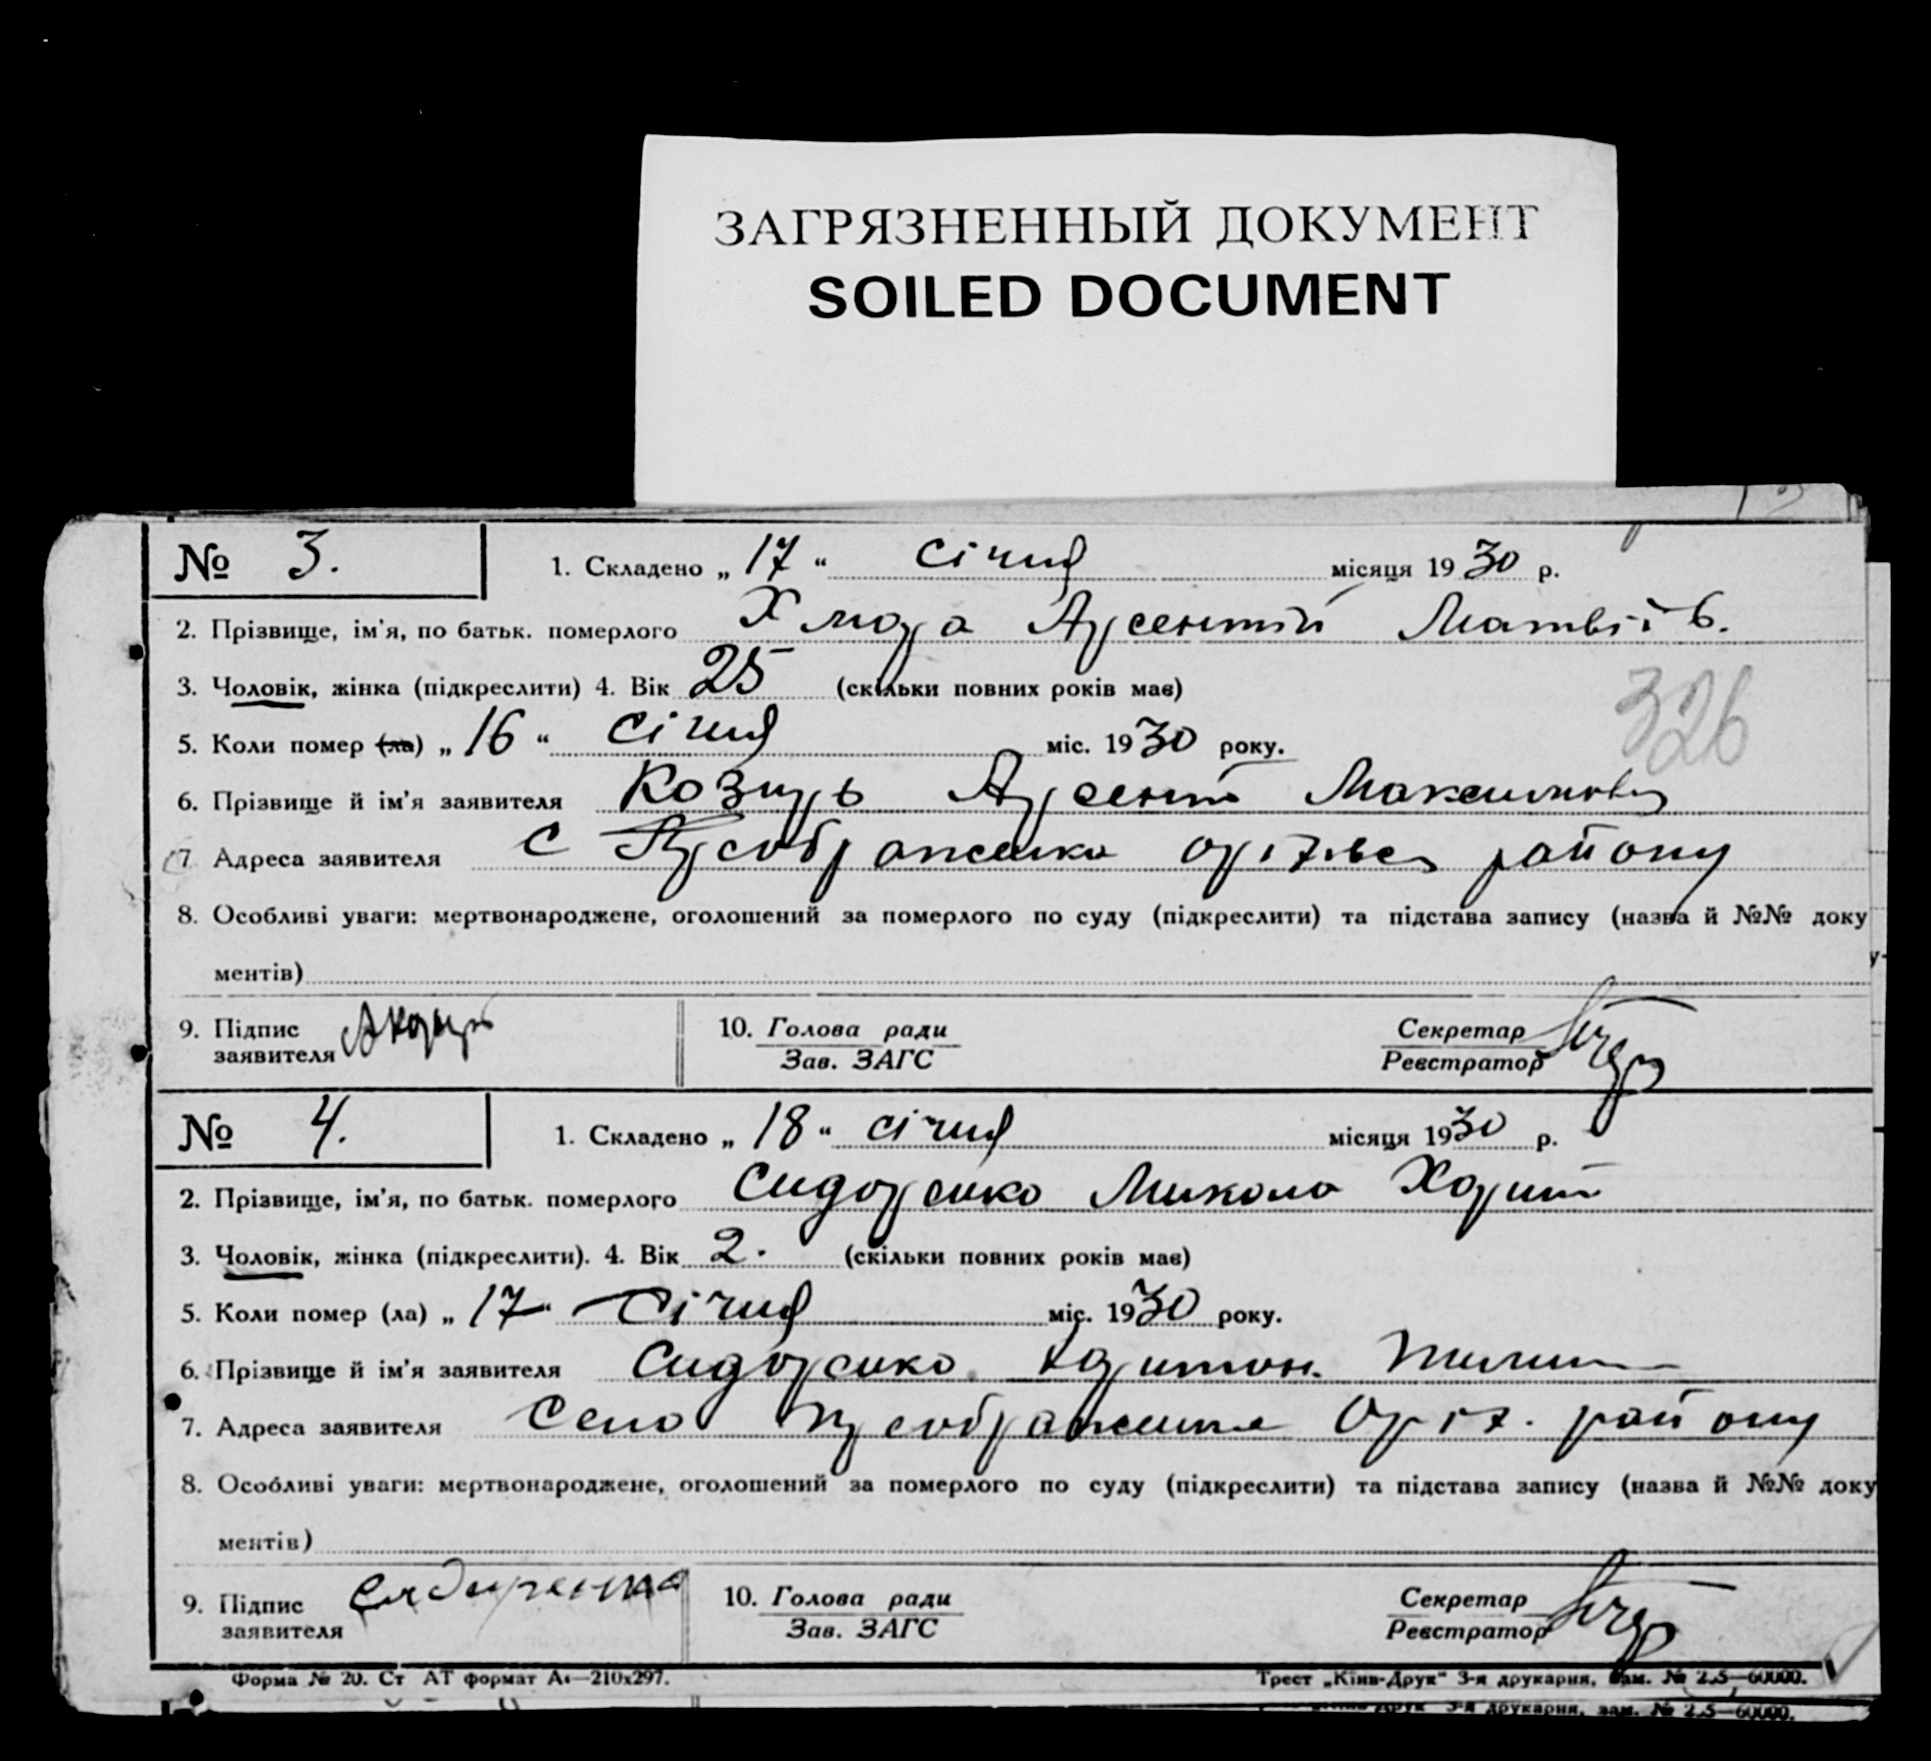 ЗАГРЯЗНЕННЫЙ ДОКУМЕНТ
SOILED DOCUMENT
№ 3. 1. Складено „ 17 “ січня місяця 19 30 р.
2. Прізвище, ім'я, по батьк. померлого Хмара Арсентій Матвіїв.
3. Чоловік, жінка (підкреслити) 4. Вік 25 (скільки повних років має)
326
5. Коли помер (ла) „ 16 “ січня міс. 19 30 року.
6. Прізвище й ім'я заявителя Козирь Арсентій
7. Адреса заявителя С Преображенка району
8. Особливі уваги: мертвонароджене, оголошений за померлого по суду (підкреслити) та підстава запису (назва й №№ доку
ментів)
9. Підпис 10. Голова ради Секретар
заявителя Зав. ЗАГС Реєстратор
№ 4. 1. Складено „ 18 “ січня місяця 19 30 р.
2. Прізвище, ім'я, по батьк. померлого Сидоренко Микола Харит
3. Чоловік, жінка (підкреслити). 4. Вік 2. (скільки повних років має)
5. Коли помер (ла) „ 17 “ Січня міс. 19 30 року.
6. Прізвище й ім'я заявителя Сидоренко Харитон.
7. Адреса заявителя Село Преображенка Оріх. району
8. Особливі уваги: мертвонароджене, оголошений за померлого по суду (підкреслити) та підстава запису (назва й №№ доку
ментів)
9. Підпис 10. Голова ради Секретар
заявителя Зав. ЗАГС Реєстратор
Форма № 20. Ст АТ формат А4—210х297. Трест „Київ-Друк“ 3-я друкарня, зам. № 2.5—60000.
3-я друкарня, зам. № 2.5—60000.